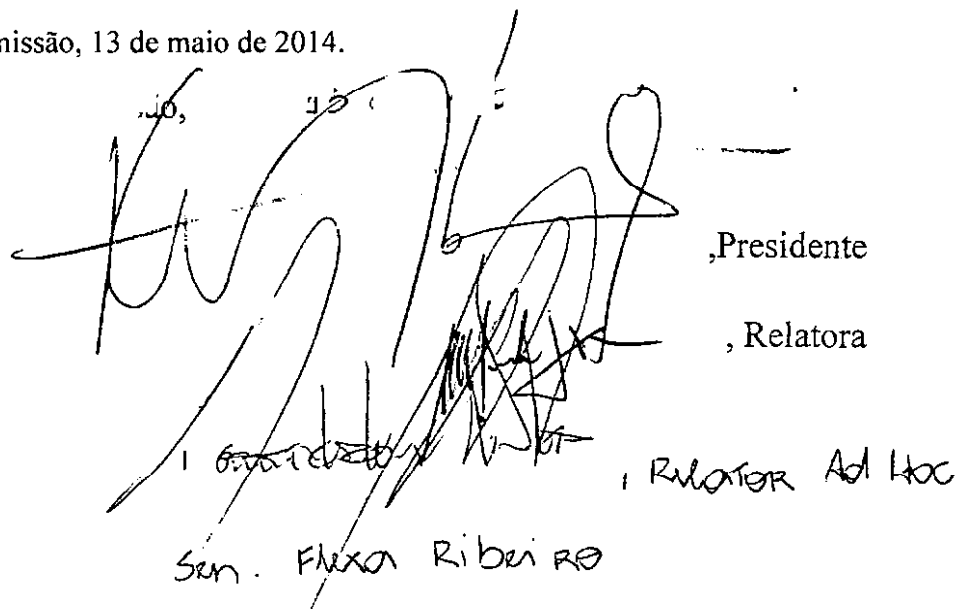 missão, 13 de maio de 2014.
,Presidente
, Relatora
, RELATOR Ad Hoc
Sen. Flexa Ribeiro